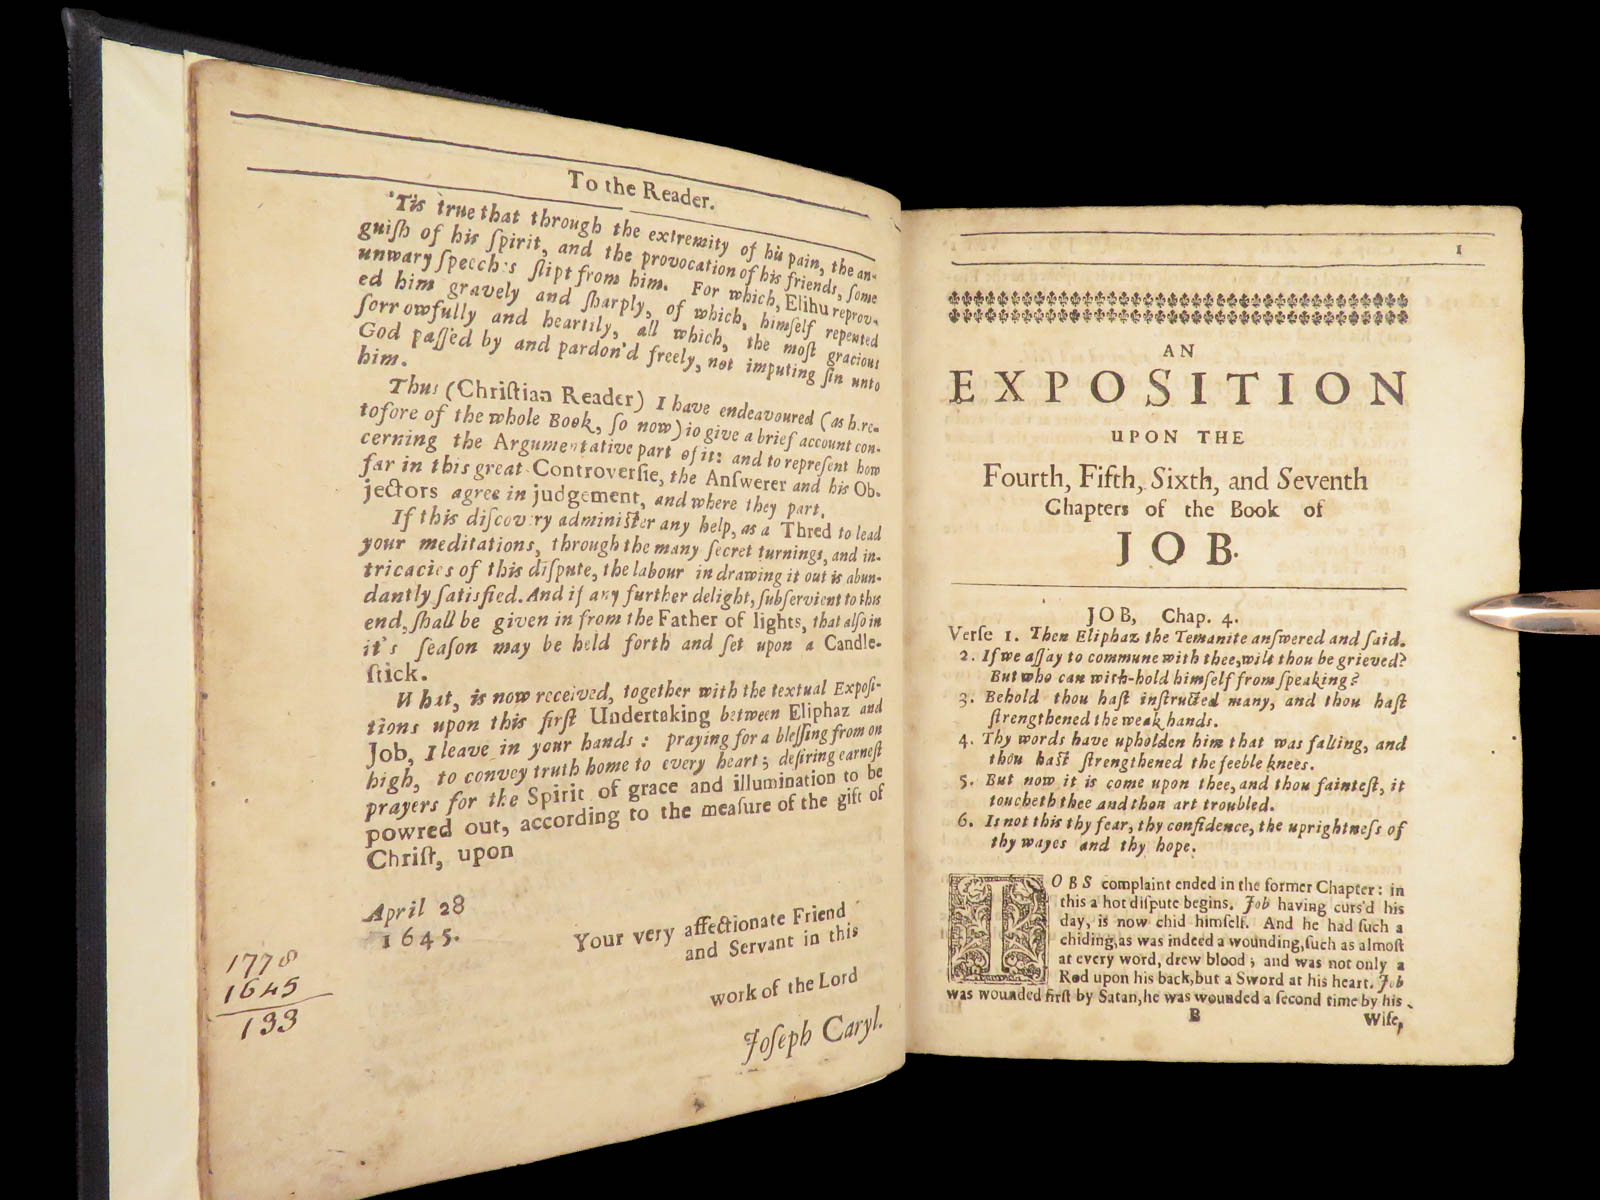 To the Reader.
'Tis true that through the extremity of his pain, the an-
guiſh of his ſpirit, and the provocation of his friends, ſome
unwary ſpeeches ſlipt from him. For which, Elihu reprov-
ed him gravely and ſharply, of which, himſelf repented
ſorrowfully and heartily, all which, the moſt gracious
God paſſed by and pardon'd freely, not imputing ſin unto
him.
Thus (Chriſtian Reader) I have endeavoured (as here-
tofore of the whole Book, ſo now) to give a brief account con-
cerning the Argumentative part of it: and to repreſent how
far in this great Controverſie, the Anſwerer and his Ob-
jectors agree in judgement, and where they part.
If this diſcovery adminiſter any help, as a Thred to lead
your meditations, through the many ſecret turnings, and in-
tricacies of this diſpute, the labour in drawing it out is abun-
dantly ſatisfied. And if any further delight, ſubſervient to this
end, ſhall be given in from the Father of lights, that alſo in
it's ſeaſon may be held forth and ſet upon a Candle-
ſtick.
What, is now received, together with the textual Expoſi-
tions upon this firſt Undertaking between Eliphaz and
Job, I leave in your hands: praying for a bleſſing from on
high, to convey truth home to every heart; deſiring earneſt
prayers for the Spirit of grace and illumination to be
powred out, according to the meaſure of the gift of
Chriſt, upon
April 28
1645.
Your very affectionate Friend
and Servant in this
work of the Lord
Joſeph Caryl.
1778
1645
133
1
AN
EXPOSITION
UPON THE
Fourth, Fifth, Sixth, and Seventh
Chapters of the Book of
JOB.
JOB, Chap. 4.
Verſe 1. Then Eliphaz the Temanite anſwered and ſaid.
2. If we aſſay to commune with thee, wilt thou be grieved?
But who can with-hold himſelf from ſpeaking?
3. Behold thou haſt inſtructed many, and thou haſt
ſtrengthened the weak hands.
4. Thy words have upholden him that was falling, and
thou haſt ſtrengthened the feeble knees.
5. But now it is come upon thee, and thou fainteſt, it
toucheth thee and thou art troubled.
6. Is not this thy fear, thy confidence, the uprightneſs of
thy wayes and thy hope.
IOBS complaint ended in the former Chapter: in
this a hot diſpute begins. Job having curs'd his
day, is now chid himſelf. And he had ſuch a
chiding, as was indeed a wounding, ſuch as almoſt
at every word, drew blood; and was not only a
Rod upon his back, but a Sword at his heart. Job
was wounded firſt by Satan, he was wounded a ſecond time by his
B
Wife,